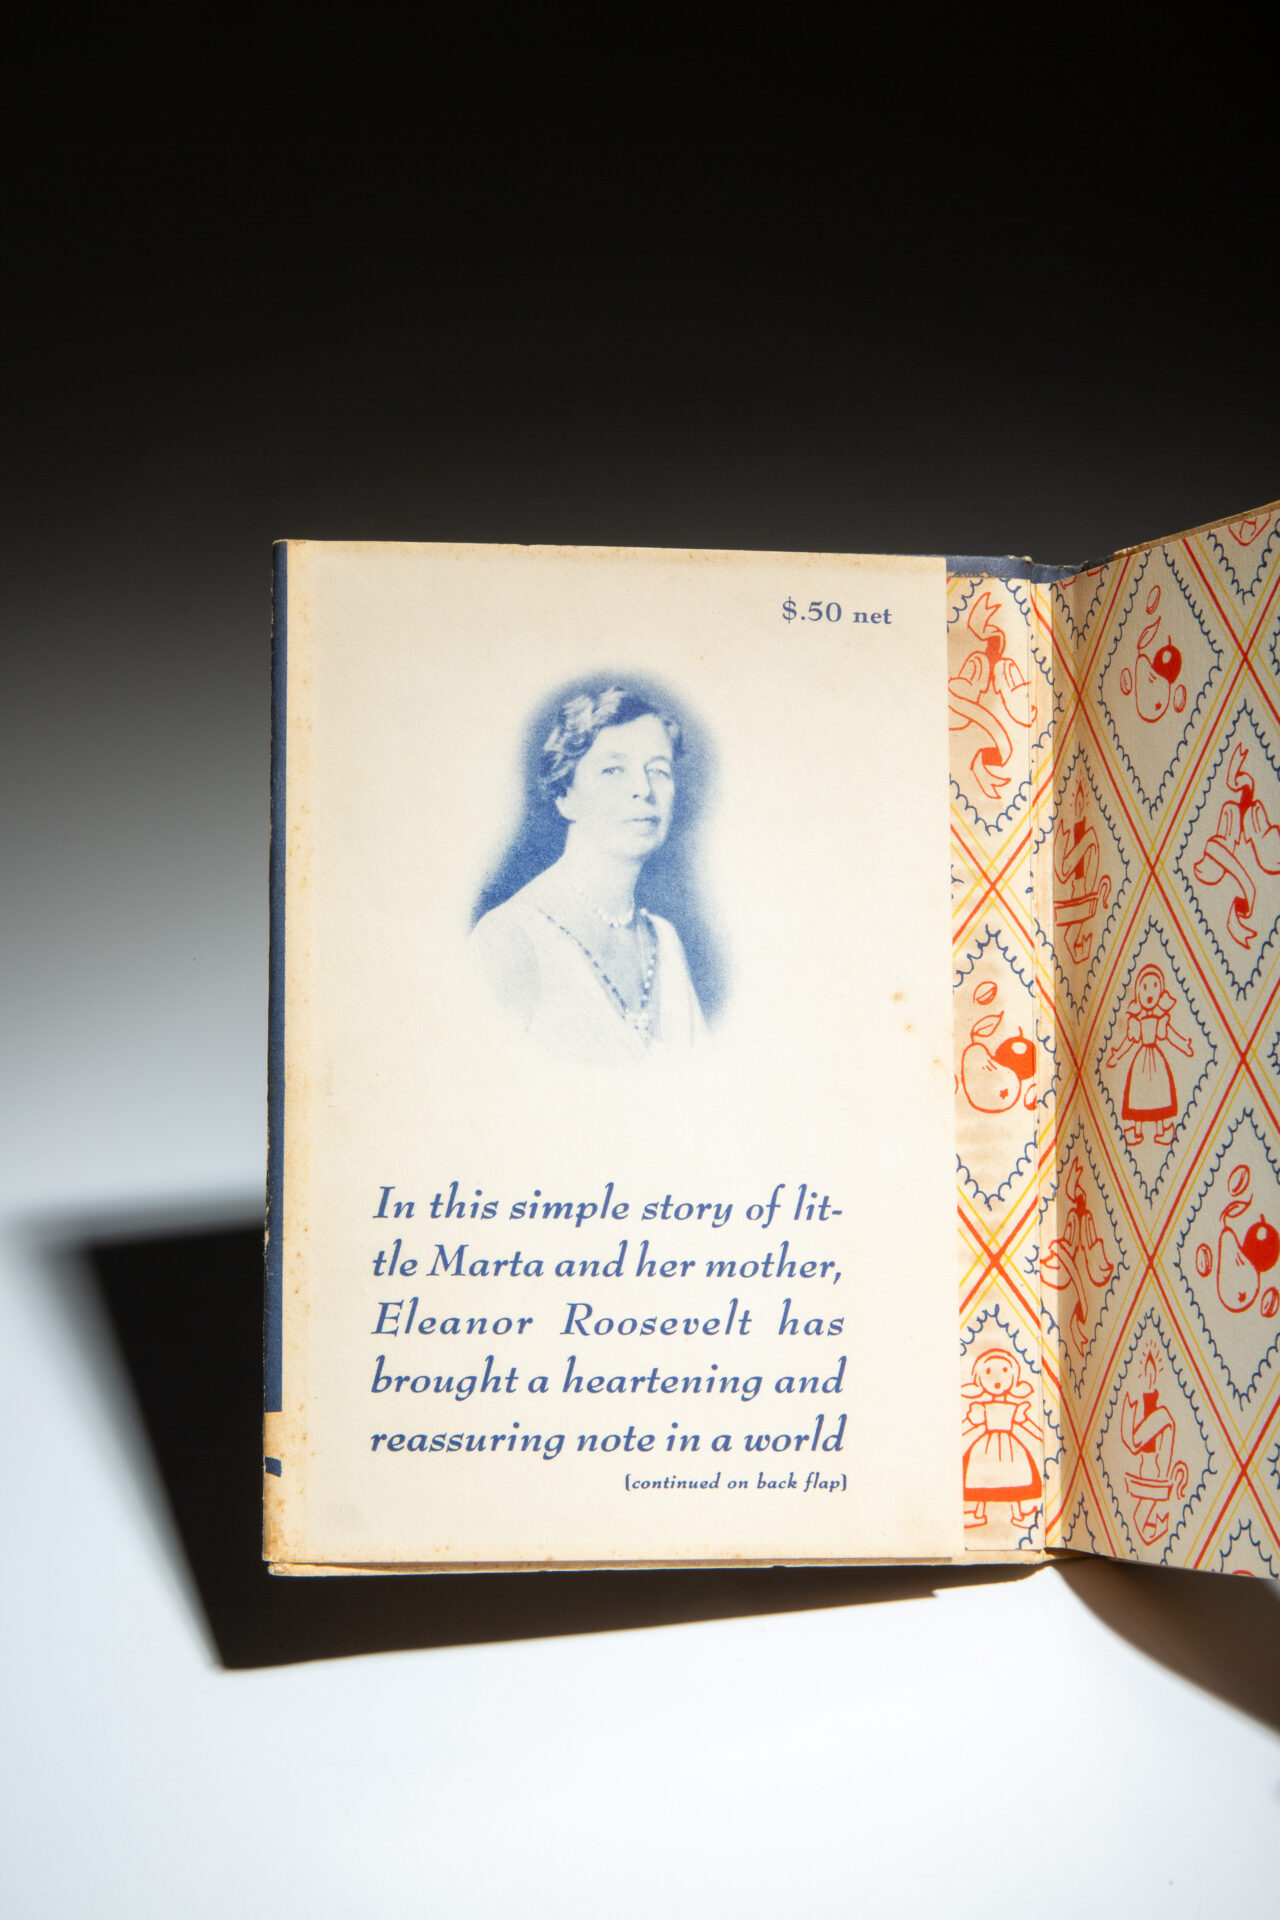 $.50 net
In this simple story of lit-
tle Marta and her mother,
Eleanor Roosevelt has
brought a heartening and
reassuring note in a world
(continued on back flap)